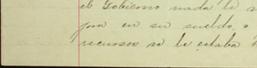 el Gobierno nada le
por en su sueldo, o
recursos se le estaba